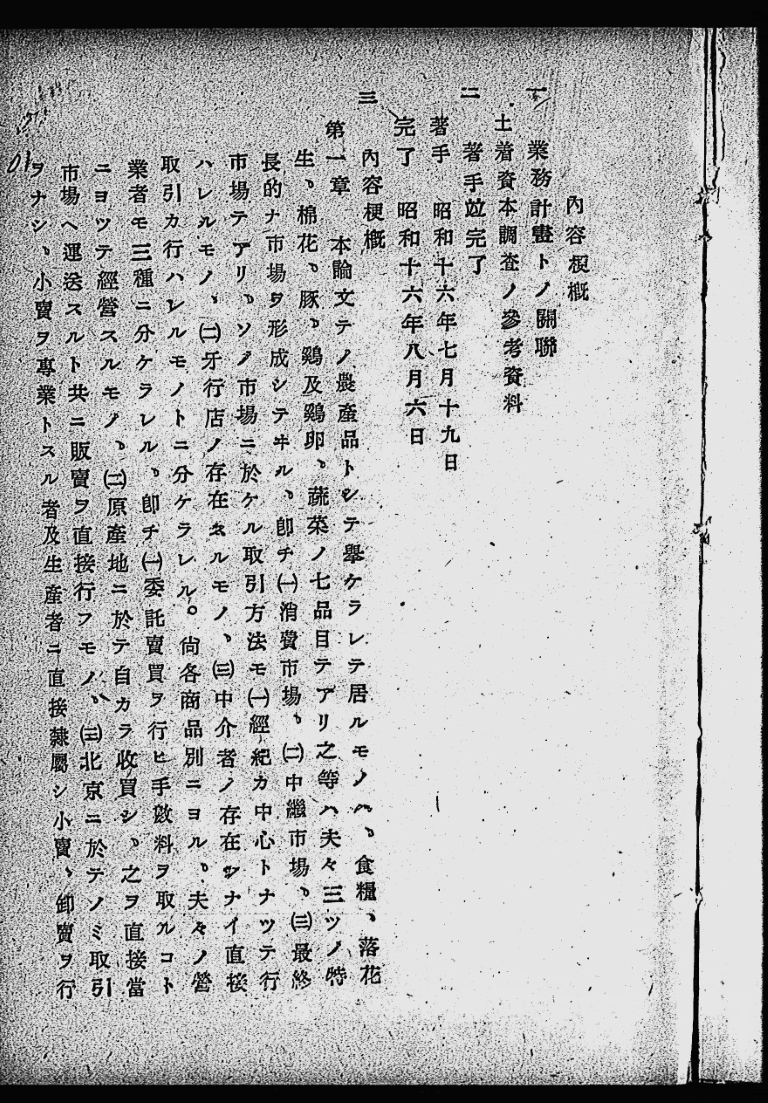 內容梗概
一 業務計畫トノ關聯
土着資本調査ノ參考資料
二 著手竝完了
著手 昭和十六年七月十九日
完了 昭和十六年八月六日
三 內容梗概
第一章 本論文テノ農產品トシテ擧ケラレテ居ルモノハ、食糧、落花
生、棉花、豚、鷄及鷄卵、蔬菜ノ七品目テアリ之等ハ夫々三ツノ特
長的ナ市場ヲ形成シテヰル、卽チ㈠消費市場、㈡中繼市場、㈢最終
市場テアリ、ソノ市場ニ於ケル取引方法モ㈠經紀カ中心トナツテ行
ハレルモノ、㈡牙行店ノ存在スルモノ、㈢中介者ノ存在シナイ直接
取引カ行ハレルモノトニ分ケラレル。尙各商品別ニヨル、夫々ノ營
業者モ三種ニ分ケラレル、卽チ㈠委託賣買ヲ行ヒ手數料ヲ取ルコト
ニヨツテ經營スルモノ、㈡原產地ニ於テ自カラ收買シ、之ヲ直接當
市場ヘ運送スルト共ニ販賣ヲ直接行フモノ、㈢北京ニ於テノミ取引
ヲナシ、小賣ヲ專業トスル者及生產者ニ直接隸屬シ小賣、卸賣ヲ行